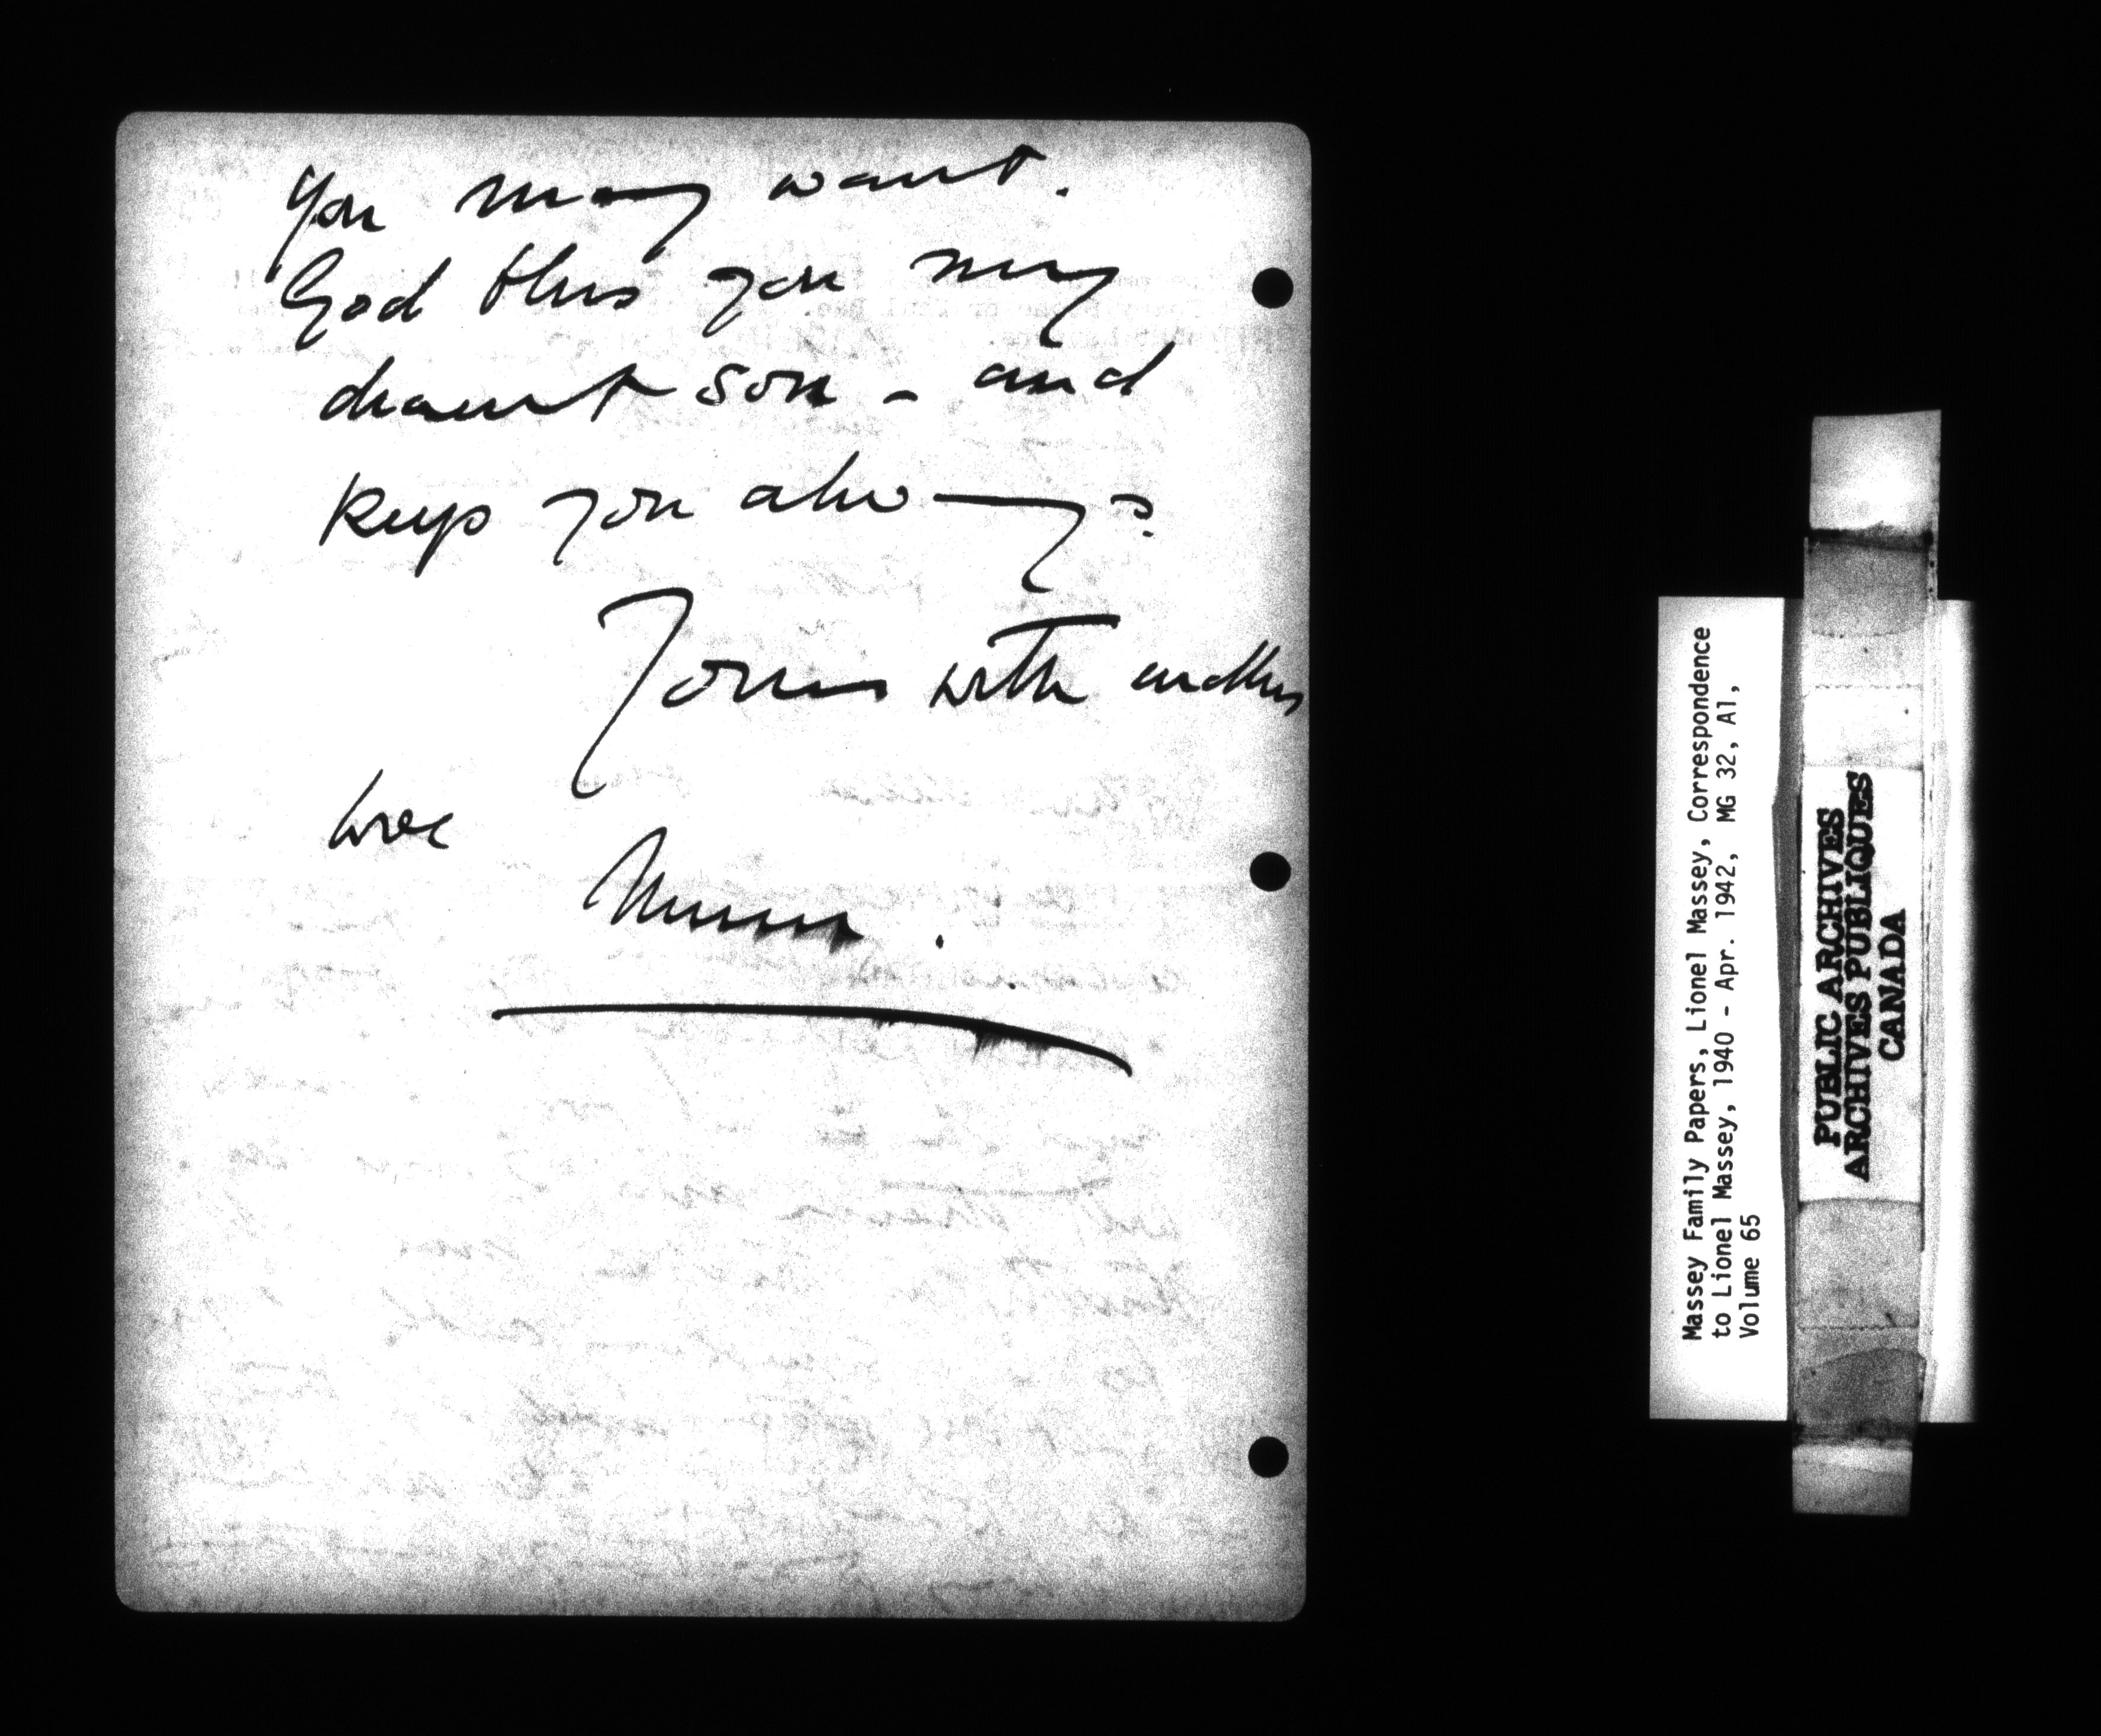 you may want.
God bless you my
dearest son - and
keep you always.
Yours with endless
love
Mum.
Massey Family Papers, Lionel Massey, Correspondence
to Lionel Massey, 1940 - Apr. 1942, MG 32, A1,
Volume 65
PUBLIC ARCHIVES
ARCHIVES PUBLIQUES
CANADA